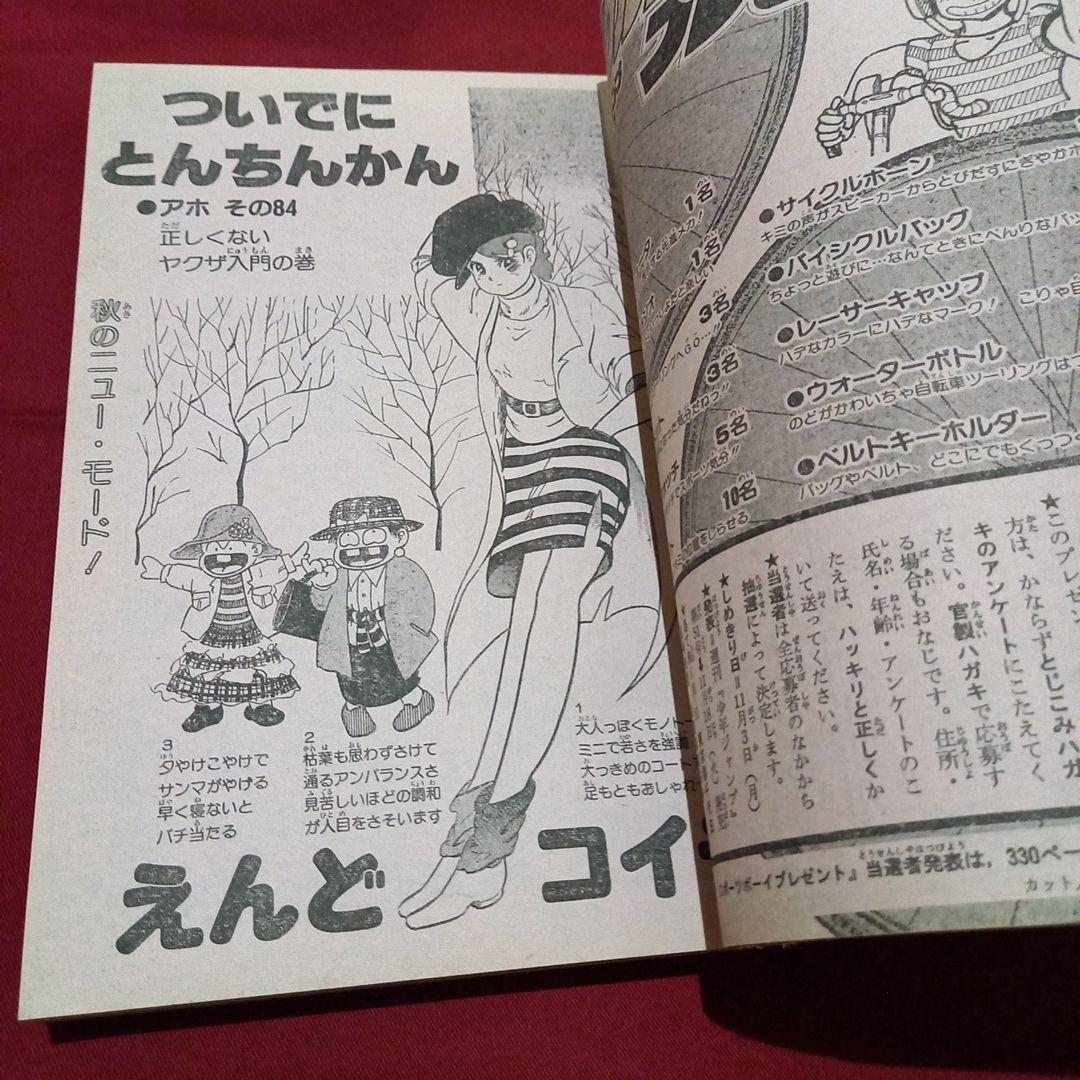 ついでに
とんちんかん
●アホ その84
正しくない
ヤクザ入門の巻
秋のニュー・モード！
3
夕やけこやけで
サンマがやける
早く寝ないと
バチ当たる
2
枯葉も思わずさけて
通るアンバランスさ
見苦しいほどの調和
が人目をさそいます
1
大人っぽくモノトー
ミニで若さを強調
大っきめのコート
足もともあしゃれ
えんど
コイ
1名
1名
3名
3名
5名
10名
●サイクルホーン
キミの声がスピーカーからとびだすにぎやかホ
●バイシクルバッグ
ちょっと遊びに…なんてときにべんりなバッ
●レーサーキャップ
ハデなカラーにハデなマーク！ こりゃ自
●ウォーターボトル
のどがかわいちゃ自転車ツーリングは
●ベルトキーホルダー
バッグやベルト、どこにでもくっつく
★このプレゼン
方は、かならずとじこみハガ
キのアンケートにこたえてく
ださい。官製ハガキで応募す
る場合もおなじです。住所・
氏名・年齢・アンケートのこ
たえは、ハッキリと正しくか
いて送ってください。
★当選者は全応募者のなかから
抽選によって決定します。
★しめきり日＝11月3日（月）
★発表＝週刊『少年ジャンプ』
ポーツボーイプレゼント』当選者発表は，330ペー
カット